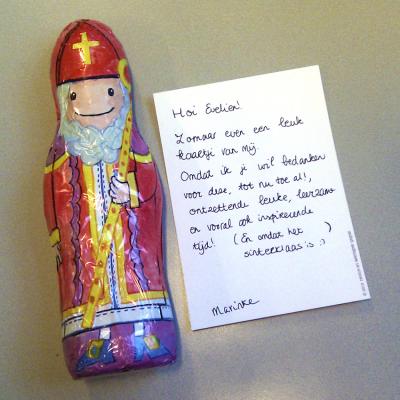 Hoi Evelien!
Zomaar even een leuk
kaartje van mij.
Omdat ik je wil bedanken
voor deze, tot nu toe al!,
ontzettende leuke, leerzame
en vooral ook inspirerende
tijd! (En omdat het
sinterklaas is :) )
Marinke